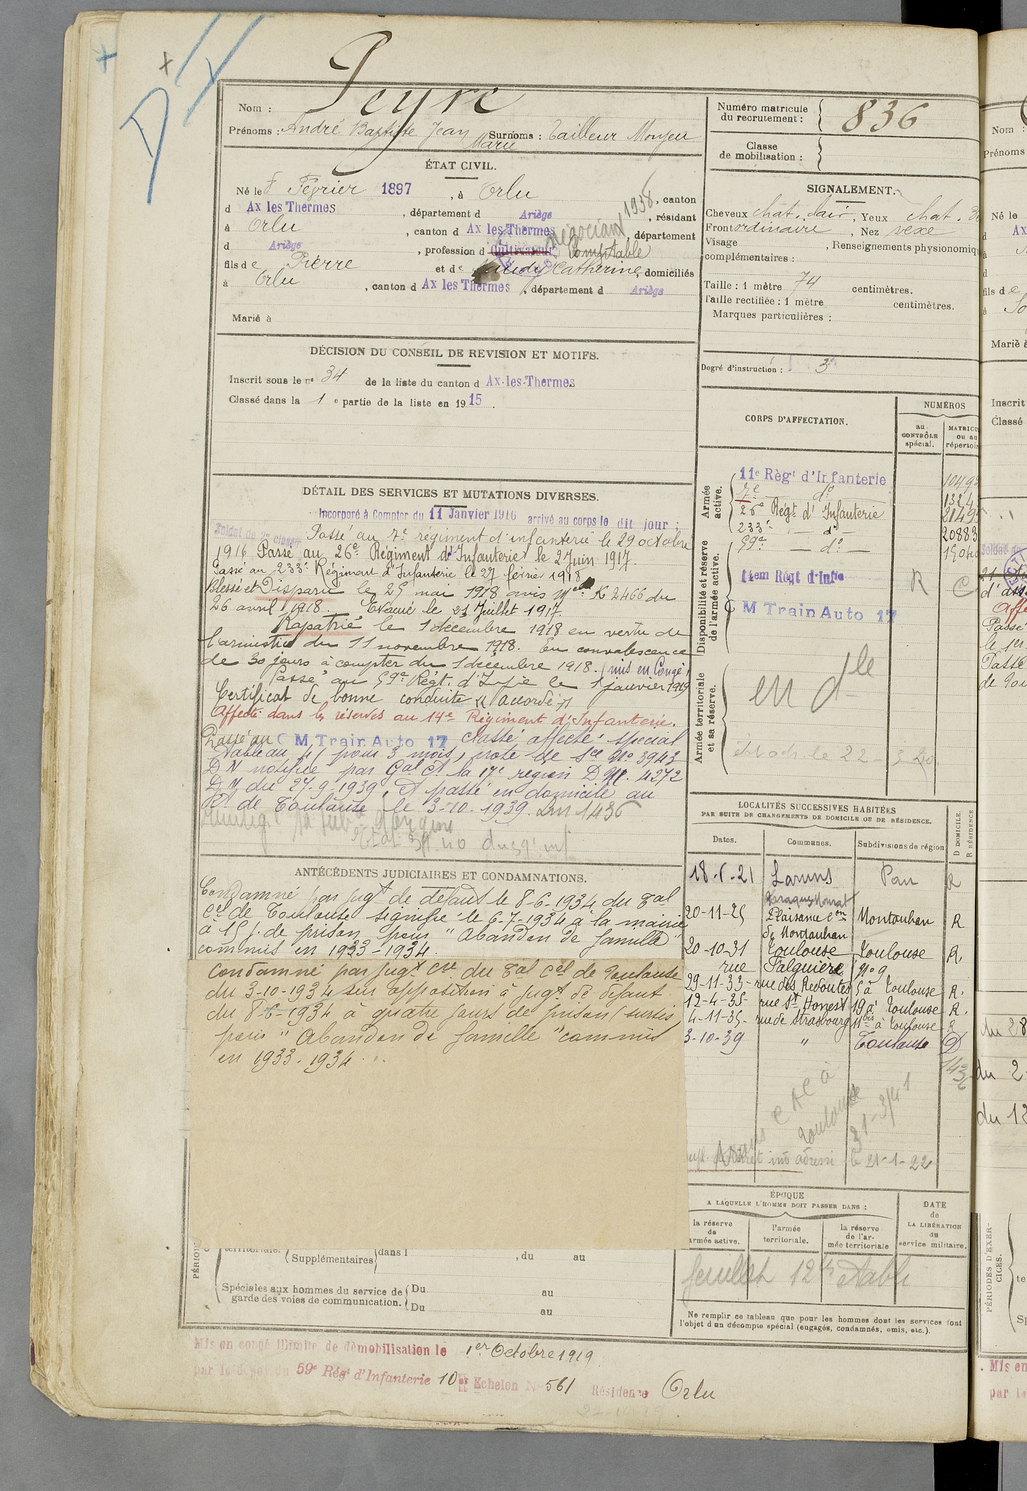 Nom : Peyre
Prénoms : André Baptiste Jean Marie Surnoms : Tailleur Monjeu
Numéro matricule du recrutement : 836
Classe de mobilisation :
ÉTAT CIVIL.
Né le 8 Février 1897, à Orlu, canton
d Ax les Thermes, département d Ariège, résidant
à Orlu, canton d Ax les Thermes, département
d Ariège, profession d cultivateur négociant 1938 Comptable
fils de Pierre et de Catherine, domiciliés
à Orlu, canton d Ax les Thermes, département d Ariège
Marié à
SIGNALEMENT.
Cheveux chat. clair, Yeux chat.
Front ordinaire, Nez vexe
Visage , Renseignements physionomiq
complémentaires :
Taille : 1 mètre 74 centimètres.
Taille rectifiée : 1 mètre centimètres.
Marques particulières :
Degré d'instruction : 3
DÉCISION DU CONSEIL DE REVISION ET MOTIFS.
Inscrit sous le n° 34 de la liste du canton d Ax-les-Thermes
Classé dans la 1e partie de la liste en 1915.
CORPS D'AFFECTATION.
NUMÉROS
au CONTRÔLE spécial.
MATRICU ou au répertoir
Armée active.
11e Régt d'Infanterie
7e — de
26e Régt d'Infanterie
233e — de
59e — de —
Disponibilité et réserve de l'armée active.
14em Régt d'Infie R C
C M Train Auto 17
Armée territoriale et sa réserve.
en dle
DÉTAIL DES SERVICES ET MUTATIONS DIVERSES.
Incorporé à Compter du 11 Janvier 1916 arrivé au corps le dit jour ;
Soldat de 2e classe Passé au 7e régiment d'infanterie le 29 octobre
1916 Passé au 26e Régiment d'Infanterie le 2 Juin 1917.
Passé au 233e Régiment d'Infanterie le 27 février 1918
Blessé et Disparu le 27 mai 1918 avis Mel K 2466 du
26 avril 1918. Evacué le 21 Juillet 1917
Rapatrié le 1 décembre 1918 en vertu de
l'armistice du 11 novembre 1918. En convalescence
de 30 jours à compter du 1 décembre 1918. (mis en Congé)
Passé au 59e Régt. d'Infie le 1 janvier 1919
Certificat de bonne conduite "accordé"
Affecté dans les réserves au 14e Régiment d'Infanterie.
Passé au C M Train Auto 17 Classé affecté spécial
Tableau pour 3 mois, note de Sce No 3943
D N notifiée par Gal Ct la 17e region D No. 4272
D/ du 27.9.1939. Et passé en domicile au
Rt de Toulouse le 3-10-1939. Lm 1436
ANTÉCÉDENTS JUDICIAIRES ET CONDAMNATIONS.
Condamné par jugt de défaut le 8-6-1934 du Bal
Cel de Toulouse signifié le 6-7-1934 à la mairie
à 15 j. de prison pour "Abandon de famille"
commis en 1933-1934.
Condamné par jugt Cre du Bal Cel de Toulouse
du 3-10-1934 sur opposition à jugt de défaut
du 8-6-1934 à quatre jours de prison sursis
pour "Abandon de famille" commis
en 1933-1934 . . .
LOCALITÉS SUCCESSIVES HABITÉES
PAR SUITE DE CHANGEMENTS DE DOMICILE OU DE RÉSIDENCE.
Dates. Communes. Subdivisions de région D DOMICILE. R RÉSIDENCE
18-6-21 Laruns Pau R
20-11-25 Plaisance Cne de Montauban Montauban R
20-10-31 Toulouse Toulouse R
rue Falguière No 9
29-11-33 - rue des Redoutes 5 à Toulouse R.
12-4-35 - rue St Honest 19 à Toulouse R.
4-11-35 - rue de Strasbourg 11bis à Toulouse R
3-10-39 " Toulouse D
C A C à Toulouse 31-3/41
le 21-1-22
ÉPOQUE
A LAQUELLE L'HOMME DOIT PASSER DANS :
la réserve de l'armée active.
l'armée territoriale.
la réserve de l'armée territoriale
DATE de LA LIBÉRATION du service militaire.
feuillet 12 établi
Ne remplir ce tableau que pour les hommes dont les services font
l'objet d'un décompte spécial (engagés, condamnés, omis, etc.).
territoriale. Supplémentaires dans l , du au
Spéciales aux hommes du service de garde des voies de communication.
Du au
Du au
Mis en congé illimité de démobilisation le 1er Octobre 1919
par le dépôt du 59e Régt d'Infanterie 10e Echelon No 561 Résidence Orlu